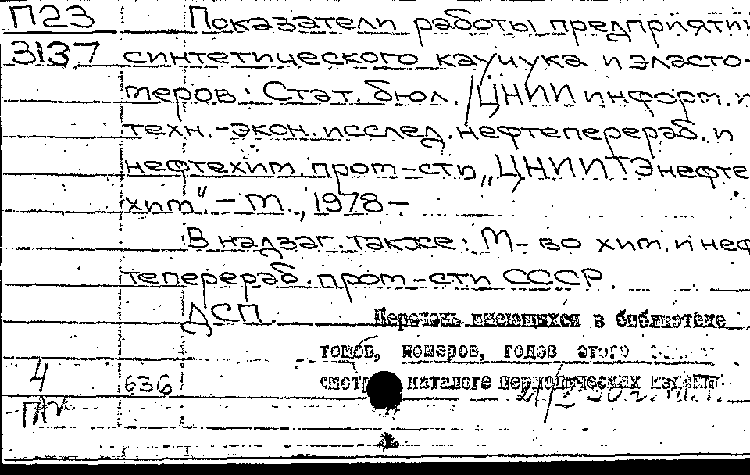 П23 Показатели работы предприяти
3137 синтетического каучука и эласто-
меров: Стат. бюл. / ЦНИИ информ. и
техн.-экон. исслед. нефтеперераб. и
нефтехим. пром-сти „ЦНИИТЭнефте
хим". - М., 1978-
В надзаг. также: М-во хим. и неф
теперераб. пром-сти СССР.
ДСП
Перечень имеющихся в библиотеке
томов, номеров, годов этого
4 636 смотр каталоге периодических